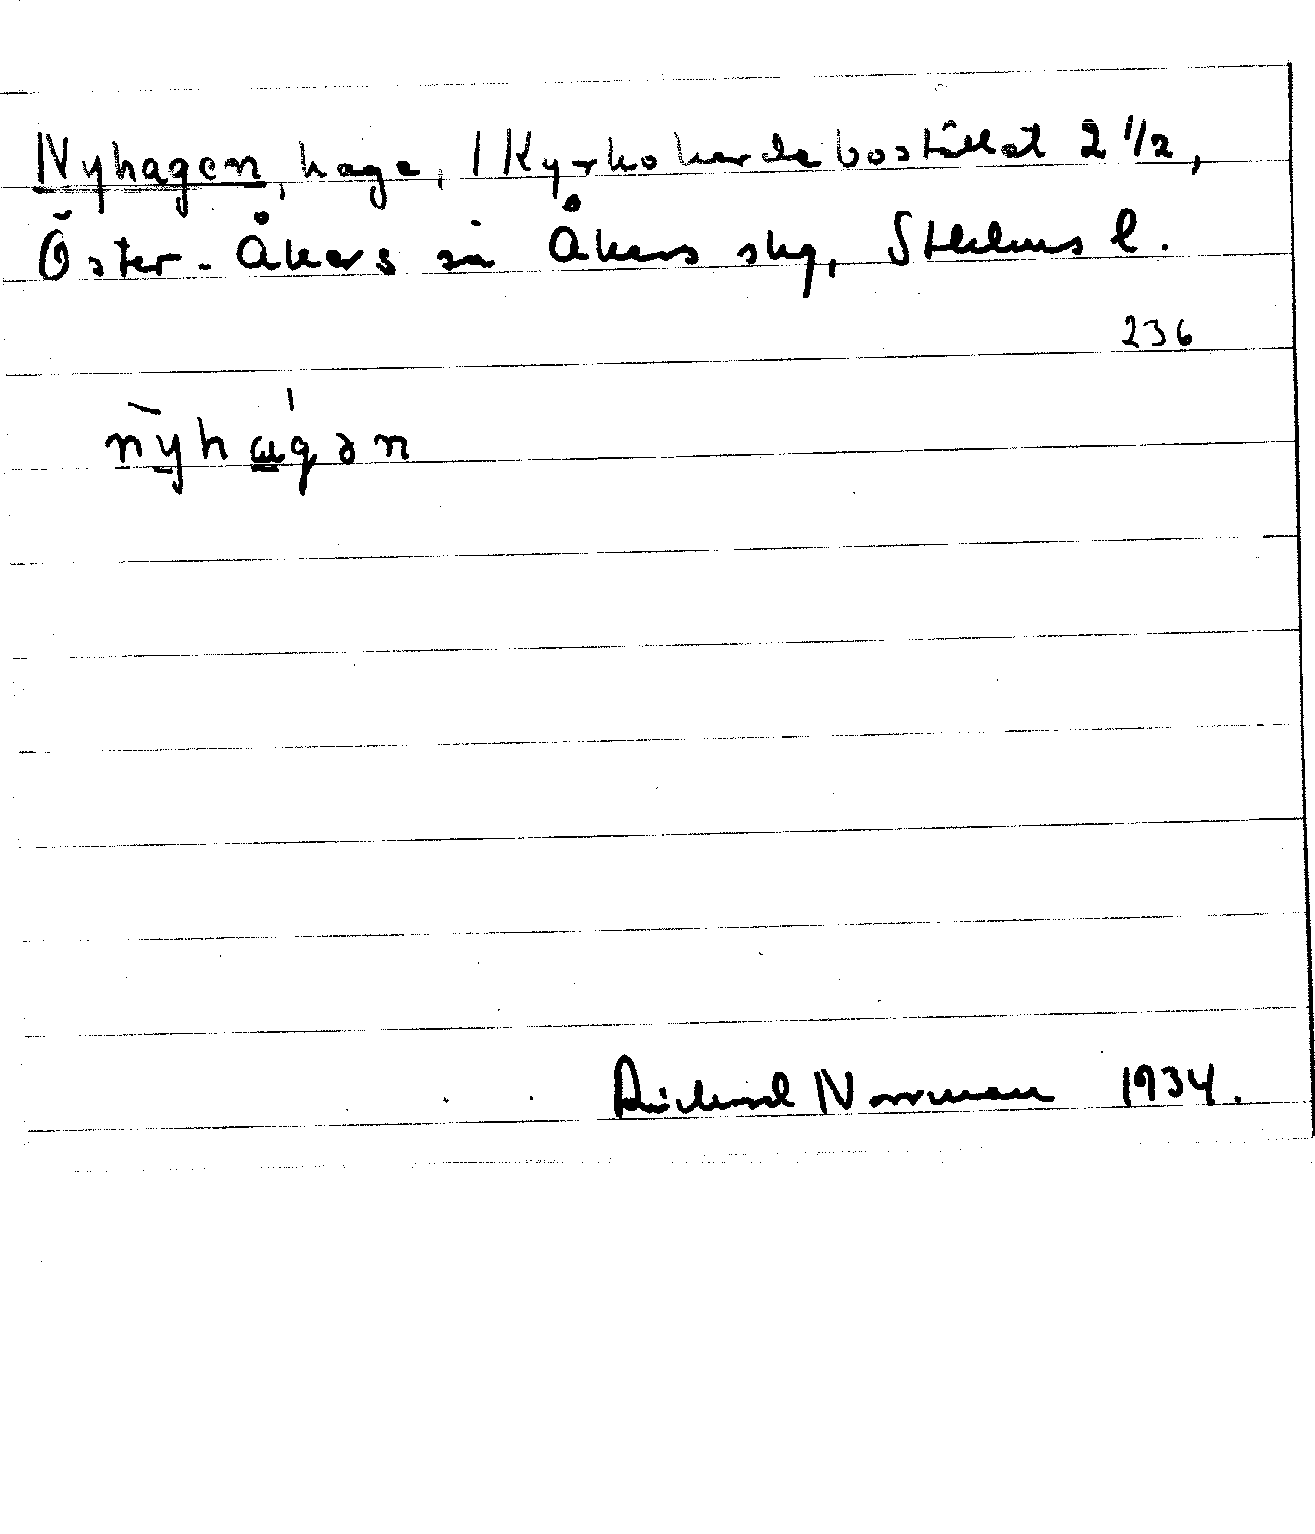 Nyhagen, hage, 1 Kyrkoherdebostället 2 1/2,
Öster-Åkers sn Åkers skg, Sthlms l.
236
nỳhɑ́gən
Richard Norrman 1934.